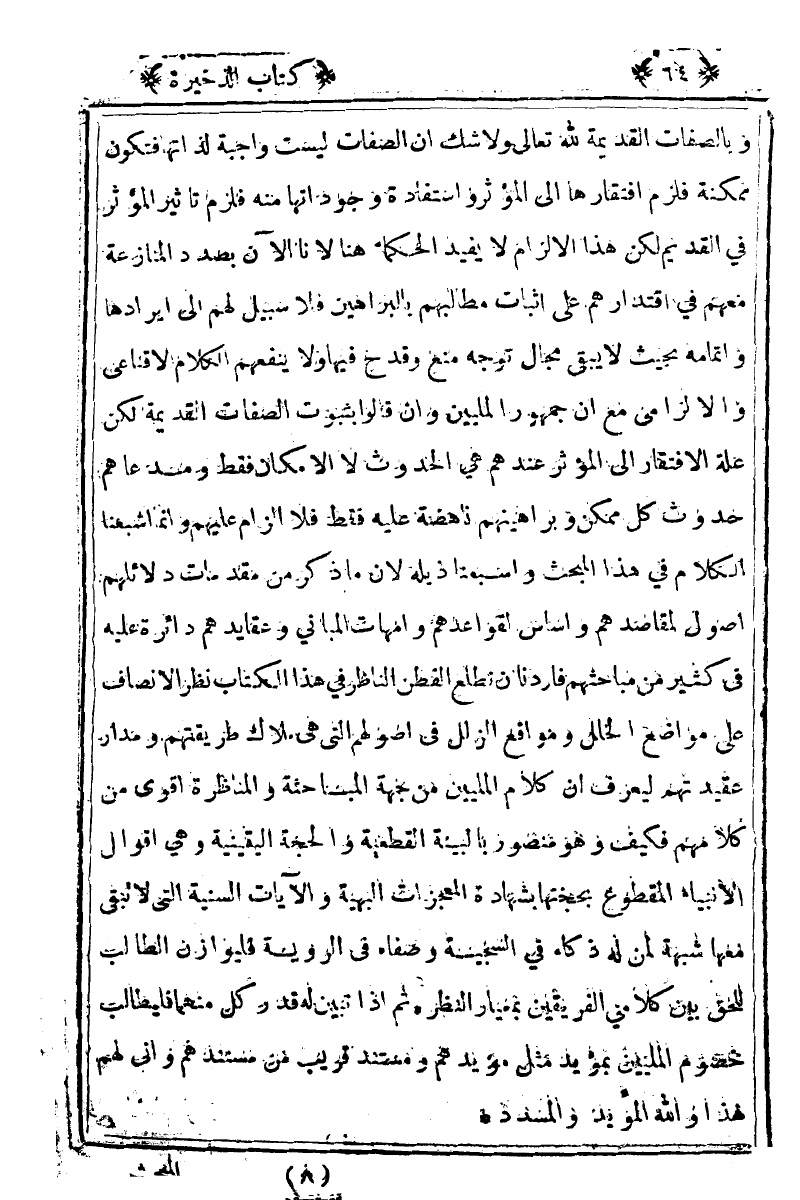 ﴿ ٦٤ ﴾ ﴿ كتاب الذخيرة ﴾
وبالصفات القديمة لله تعالى ولاشك ان الصفات ليست واجبة لذاتها فتكون
ممكنة فلزم افتقارها الى المؤثر واستفادة وجوداتها منه فلزم تاثير المؤثر
في القديم لكن هذا الالزام لا يفيد الحكماء هنا لانا الآن بصدد المنازعة
معهم في اقتدارهم على اثبات مطالبهم بالبراهين فلا سبيل لهم الى ايرادها
واتمامه بحيث لايبقى مجال توجه منع وقدح فيها ولا ينفعهم الكلام الاقناعى
والالزامى مع ان جمهور المليين وان قالوا بثبوت الصفات القديمة لكن
علة الافتقار الى المؤثر عندهم هي الحدوث لا الامكان فقط ومدعاهم
حدوث كل ممكن وبراهينهم ناهضة عليه فقط فلا الزام عليهم وانما اشبعنا
الكلام في هذا المبحث واسبعنا ذيله لان ماذكر من مقدمات دلائلهم
اصول لمقاصدهم واساس لقواعدهم وامهات المباني وعقايدهم دائرة عليه
فى كثير من مباحثهم فاردنا ان نطلع الفطن الناظر في هذا الكتاب نظر الانصاف
على مواضع الخلل ومواقع الزلل فى اصولهم التى هى ملاك طريقتهم ومدار
عقيدتهم ليعرف ان كلام المليين من جهة المباحثة والمناظرة اقوى من
كلامهم فكيف وهو منصور بالبينة القطعية والحجة اليقينية وهي اقوال
الأنبياء المقطوع بحقيتها بشهادة المعجزات البهية والآيات السنية التى لاتبقى
معها شبهة لمن له ذكاء في السجيسة وصفاء فى الروية فليوازن الطالب
للحق بين كلامي الفريقين بمعيار النظر ، ثم اذا تبين له قدر كل منهما فليطالب
خصوم المليين بمؤيد مثل مؤيدهم ومستند قريب من مستندهم وانى لهم
هذا والله المؤيد والمسدد ه
(٨) المبحث